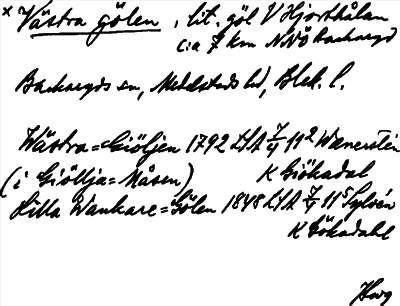 × Västra gölen, lit. göl V Hjorthålan
c:a 7 km NNÖ Backaryd
Backaryds sn, Medelstads hd, Blek. l.
Wästra=Giöljen 1792 LSA 7/4 11² Wanerstén
(i Giöllja=Måsen) K Giökadal
Lilla Wankare=Gölen 1848 LSA 7/4 11⁵ Sylvén
K Gökadahl